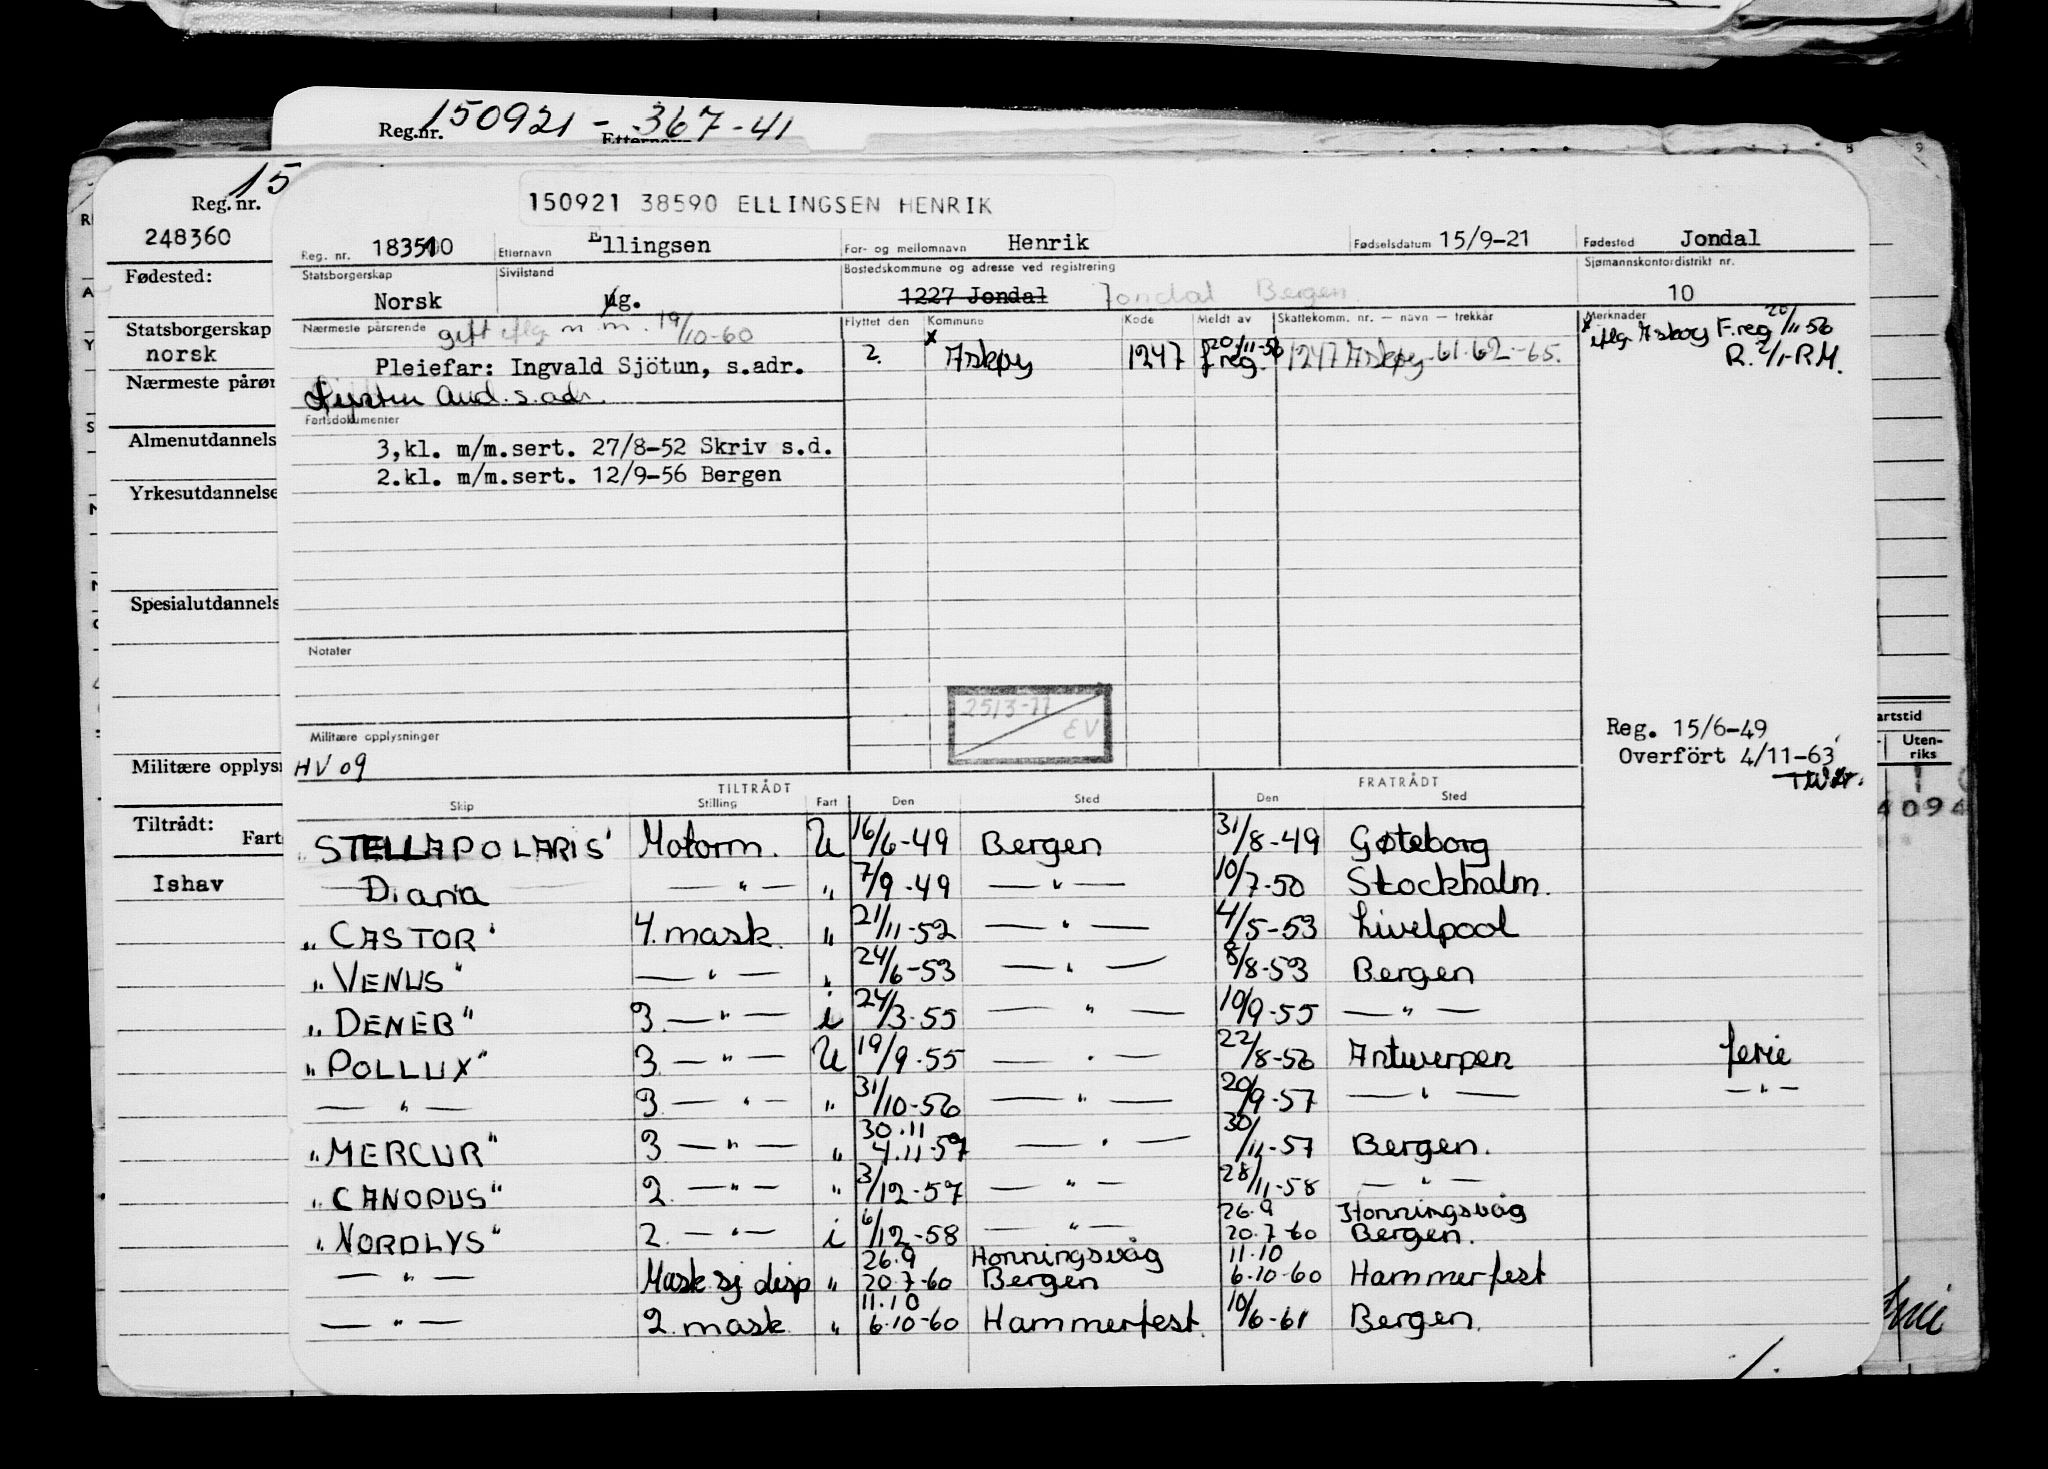 Reg.nr. 150921 - 367-41
Etternavn
15
Reg. nr.
248360
Fødested:
Statsborgerskap
norsk
Nærmeste pårør
Almenutdannels
Yrkesutdannelse
Spesialutdannels
Militære opplys
Tiltrådt:
Fart
Ishav
150921 38590 ELLINGSEN HENRIK
Reg. nr. 183510 Etternavn Ellingsen For- og mellomnavn Henrik Fødselsdatum 15/9-21 Fødested Jondal
Statsborgerskap Sivilstand Bostedskommune og adresse ved registrering Sjømannskontordistrikt nr.
Norsk ug. 1227 Jondal Jondal Bergen 10
Nærmeste pårørende gift eflg n.m. 19/10-60 Flyttet den Kommune Kode Meldt av Skattekomm. nr. — navn — trekkår Merknader
x eflg Askøy F.reg 20/11 56
Pleiefar: Ingvald Sjötun, s.adr. 2. x Askøy 1247 20/11-56 f.reg. 1247 Askøy 61.62.-65. R. 2/1-RM.
Aud. s.adr.
Fartsdokumenter
3,kl. m/m.sert. 27/8-52 Skriv s.d.
2.kl. m/m.sert. 12/9-56 Bergen
Notater
25/3-77
EV
Militære opplysninger
HV 09
Reg. 15/6-49
Overfört 4/11-63
artstid
Uten-
riks
4094
TILTRÅDT FRATRÅDT
Skip Stilling Fart Den Sted Den Sted
STELLAPOLARIS" Motorm. U 16/6-49 Bergen 31/8-49 Gøteborg
Diana — " — " 7/9-49 — " — 10/7-50 Stockholm.
"CASTOR" 4. mask. " 21/11-52 — " — 4/5-53 Livelpool
"VENUS" — " — " 24/6-53 — " — 8/8-53 Bergen
"DENEB" 3. — " — i 24/3-55 — " — 10/9-55 — " —
"POLLUX" 3. — " — U 19/9-55 — " — 22/8-56 Antwerpen ferie
— " — 3. — " — " 31/10-56 — " — 20/9-57 — " — — " —
30.11
"MERCUR" 3 — " — " 4.11-57 — " — 30/11-57 Bergen.
"CANOPUS" 2. — " — " 3/12-57 — " — 28/11-58 — " —
26.9 Honningsvåg
"NORDLYS" 2. — " — i 6/12-58 — " — 20.7-60 Bergen.
26.9 Honningsvåg 11.10
— " — Mask sj disp " 20.7-60 Bergen 6.10-60 Hammerfest
11.10
— " — 2. mask " 6.10-60 Hammerfest. 10/6-61 Bergen.